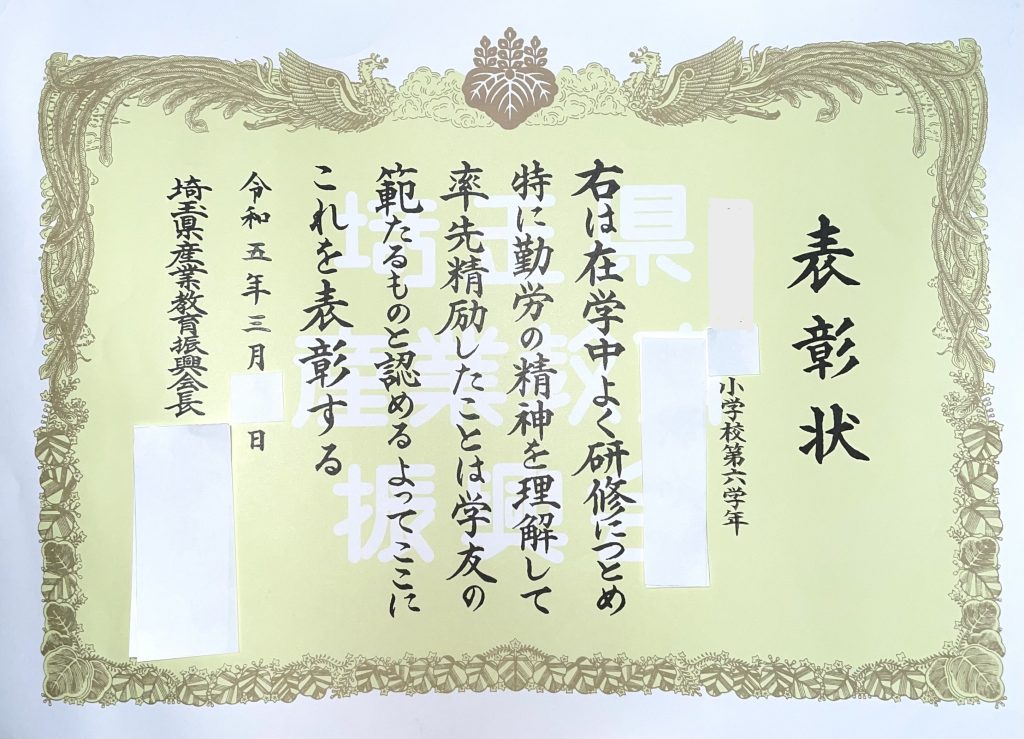 表彰状
小学校第六学年
右は在学中よく研修につとめ
特に勤労の精神を理解して
率先精励したことは学友の
範たるものと認めるよってここに
これを表彰する
令和五年三月
日
埼玉県産業教育振興会長
埼玉県
産業教育
振興会